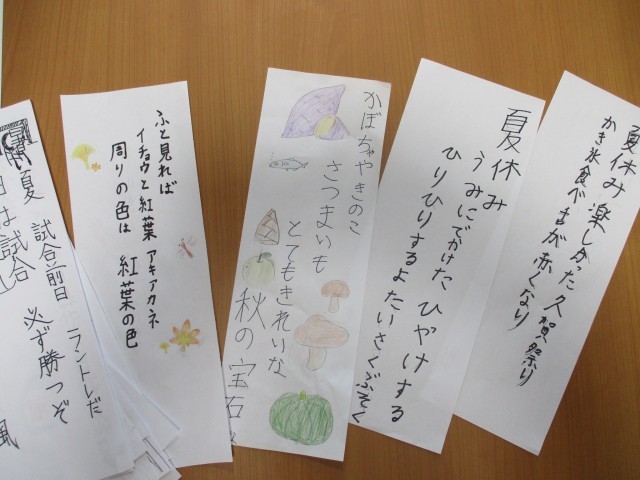 夏休み 楽しかった 久賀祭り
かき氷食べ が赤くなり
夏休み
うみにでかけた ひやけする
ひりひりするよ たいさくぶそく
かぼちゃやきのこ
さつまいも
とてもきれいな
秋の宝石
ふと見れば
イチョウと紅葉 アキアカネ
周りの色は 紅葉の色
夏 試合前日 ラントレだ
日は試合 必ず勝つぞ
風